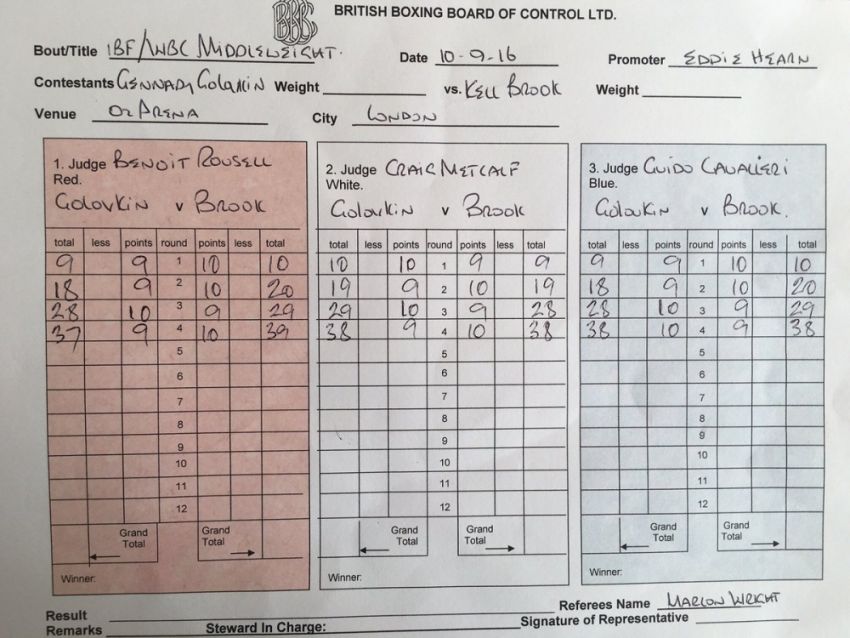 BBB
BRITISH BOXING BOARD OF CONTROL LTD.
Bout/Title IBF/WBC MIDDLEWEIGHT. Date 10-9-16 Promoter EDDIE HEARN
Contestants GENNADY GOLOVKIN Weight vs. KELL BROOK Weight
Venue O2 ARENA City LONDON
1. Judge BENOIT ROUSELL
Red.
GOLOVKIN v BROOK
total less points round points less total
9 9 1 10 10
18 9 2 10 20
28 10 3 9 29
37 9 4 10 39
5
6
7
8
9
10
11
12
Grand Total Grand Total
Winner:
2. Judge CRAIG METCALF
White.
GOLOVKIN v BROOK
total less points round points less total
10 10 1 9 9
19 9 2 10 19
29 10 3 9 28
38 9 4 10 38
5
6
7
8
9
10
11
12
Grand Total Grand Total
Winner:
3. Judge GUIDO CAVALIERI
Blue.
GOLOVKIN v BROOK.
total less points round points less total
9 9 1 10 10
18 9 2 10 20
28 10 3 9 29
38 10 4 9 38
5
6
7
8
9
10
11
12
Grand Total Grand Total
Winner:
Result Referees Name MARLON WRIGHT
Remarks Steward In Charge: Signature of Representative